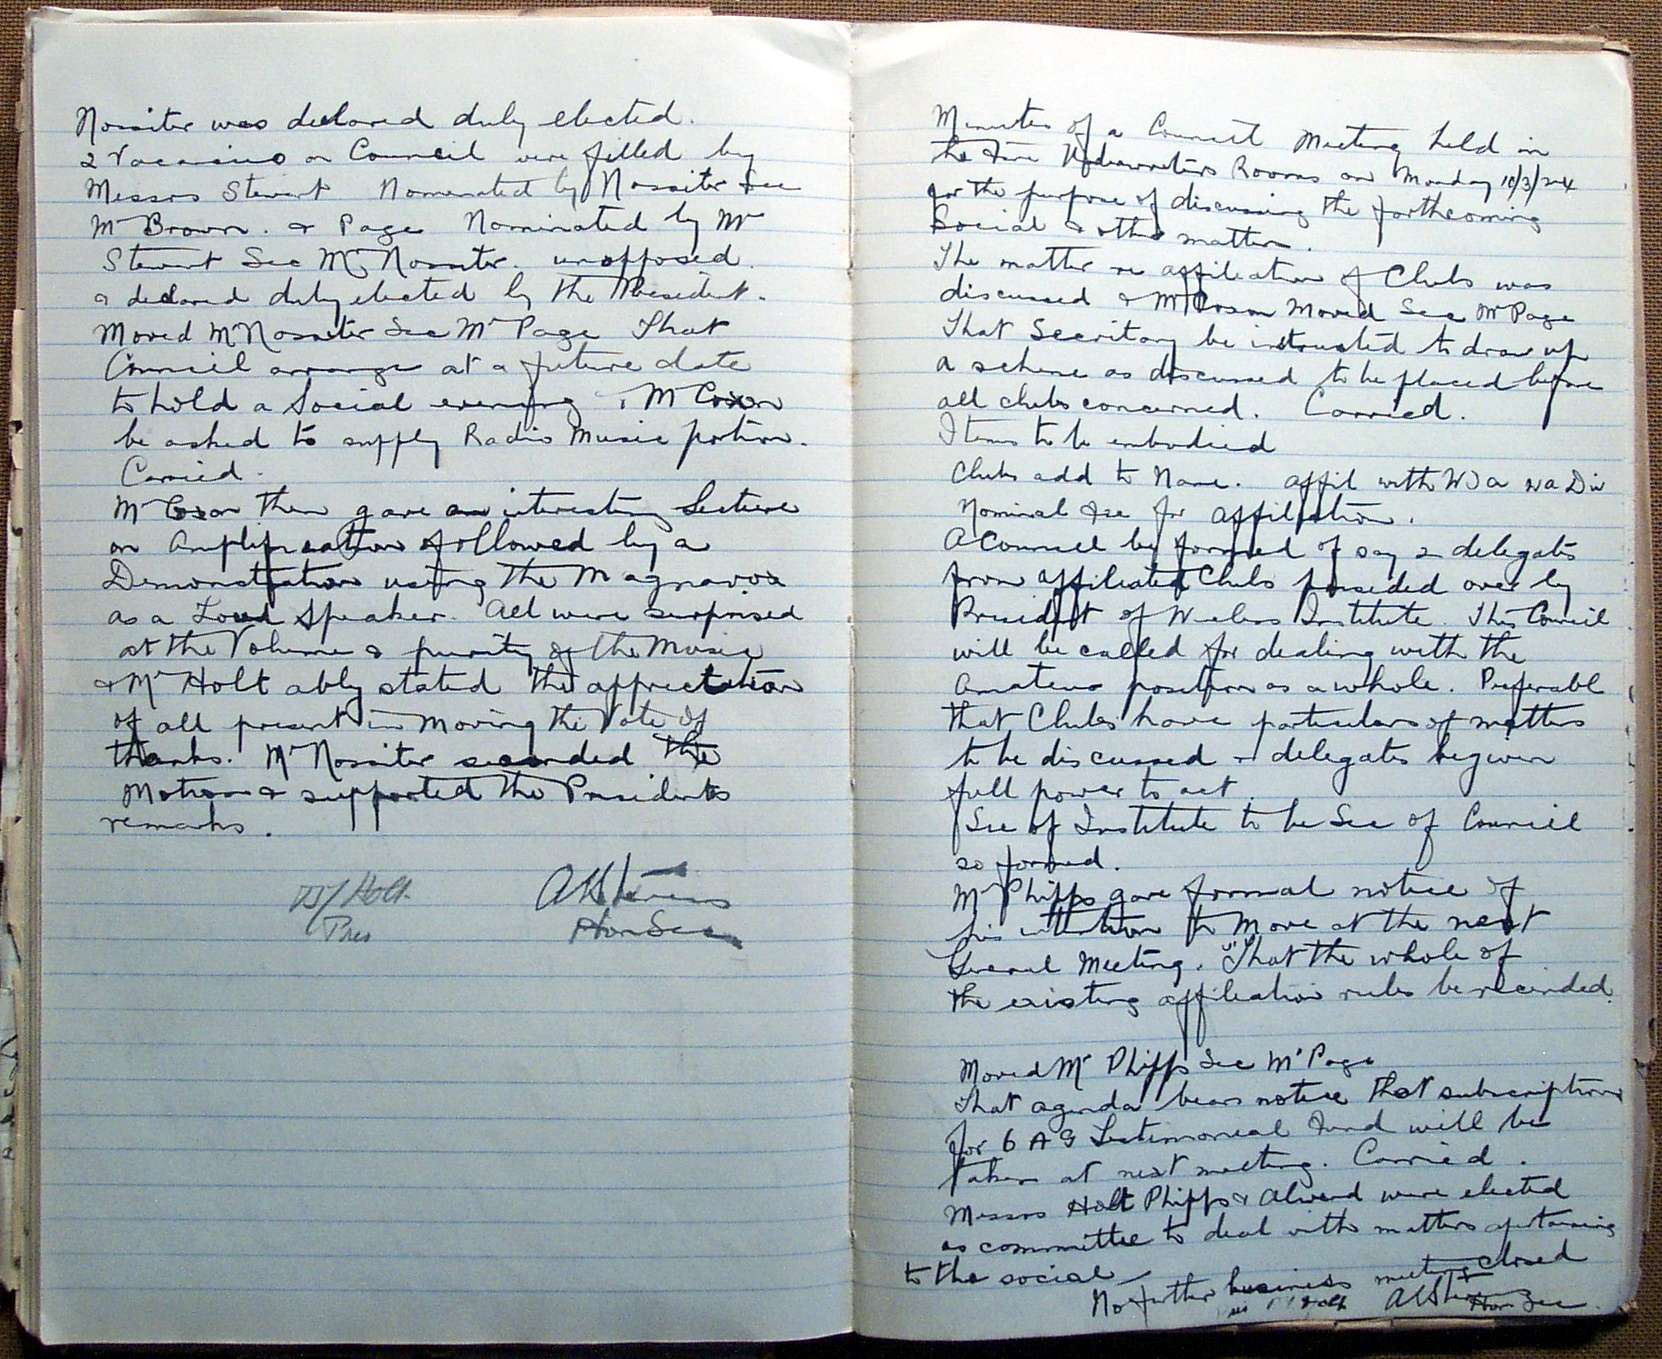 Nossiter was declared duly elected.
2 Vacancies on Council were filled by
Messrs Stewart Nominated by Nossiter Sec
Mr Brown. & Page Nominated by Mr
Stewart Sec Mr Nossiter. unopposed.
& declared duly elected by the President.
Moved Mr Nossiter Sec Mr Page That
Council arrange at a future date
to hold a Social evening, Mr Coxon
be asked to supply Radio Music portion.
Carried.
Mr Coxon then gave an interesting Lecture
on Amplification followed by a
Demonstration using the Magnavox
as a Loud Speaker. All were surprised
at the Volume & purity of the Music
& Mr Holt ably stated the appreciation
of all present in moving the Vote of
thanks. Mr Nossiter seconded the
Motion & supported the Presidents
remarks.
Holt
Pres
Hon Sec
Minutes of a Council Meeting held in
the Fire Underwriters Rooms on Monday 10/3/24
for the purpose of discussing the forthcoming
Social & other matters.
The matter re affiliation of Clubs was
discussed & Mr Coxon Moved Sec Mr Page
That Secritary be instructed to draw up
a scheme as discussed to be placed before
all clubs concerned. Carried.
Items to be embodied
Clubs add to Name. affil with W I a Wa Div
Nominal Fee for affiliation.
A Council be formed of say 2 delegates
from affiliated Clubs presided over by
President of Wireless Institute. This Council
will be called for dealing with the
Amateur position as a whole. Preferabl
that Clubs have particulars of matters
to be discussed & delegates begiven
full power to act.
Sec of Institute to be Sec of Council
so formed.
Mr Phipps gave formal notice of
his intention to Move at the next
General Meeting. "That the whole of
the existing affiliation rules be recinded.
Moved Mr Phipps Sec Mr Page
That agenda bears notice that subscriptions
for 6 A G Testimonial Fund will be
taken at next meeting. Carried.
Messrs Holt Phipps & were elected
as committee to deal with matters apertaining
to the social
No further business meeting closed
Holt Hon Sec.